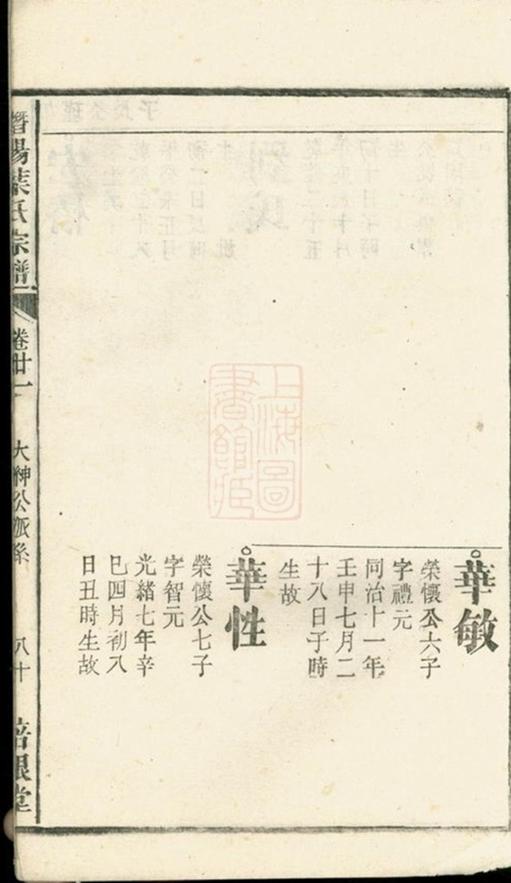 華敏
榮懷公六子
字禮元
同治十一年
壬申七月二
十八日子時
生故
華性
榮懷公七子
字智元
光緒七年辛
巳四月初八
日丑時生故
葉氏宗譜
卷廿一
大紳公派系
八十
上海圖書館藏